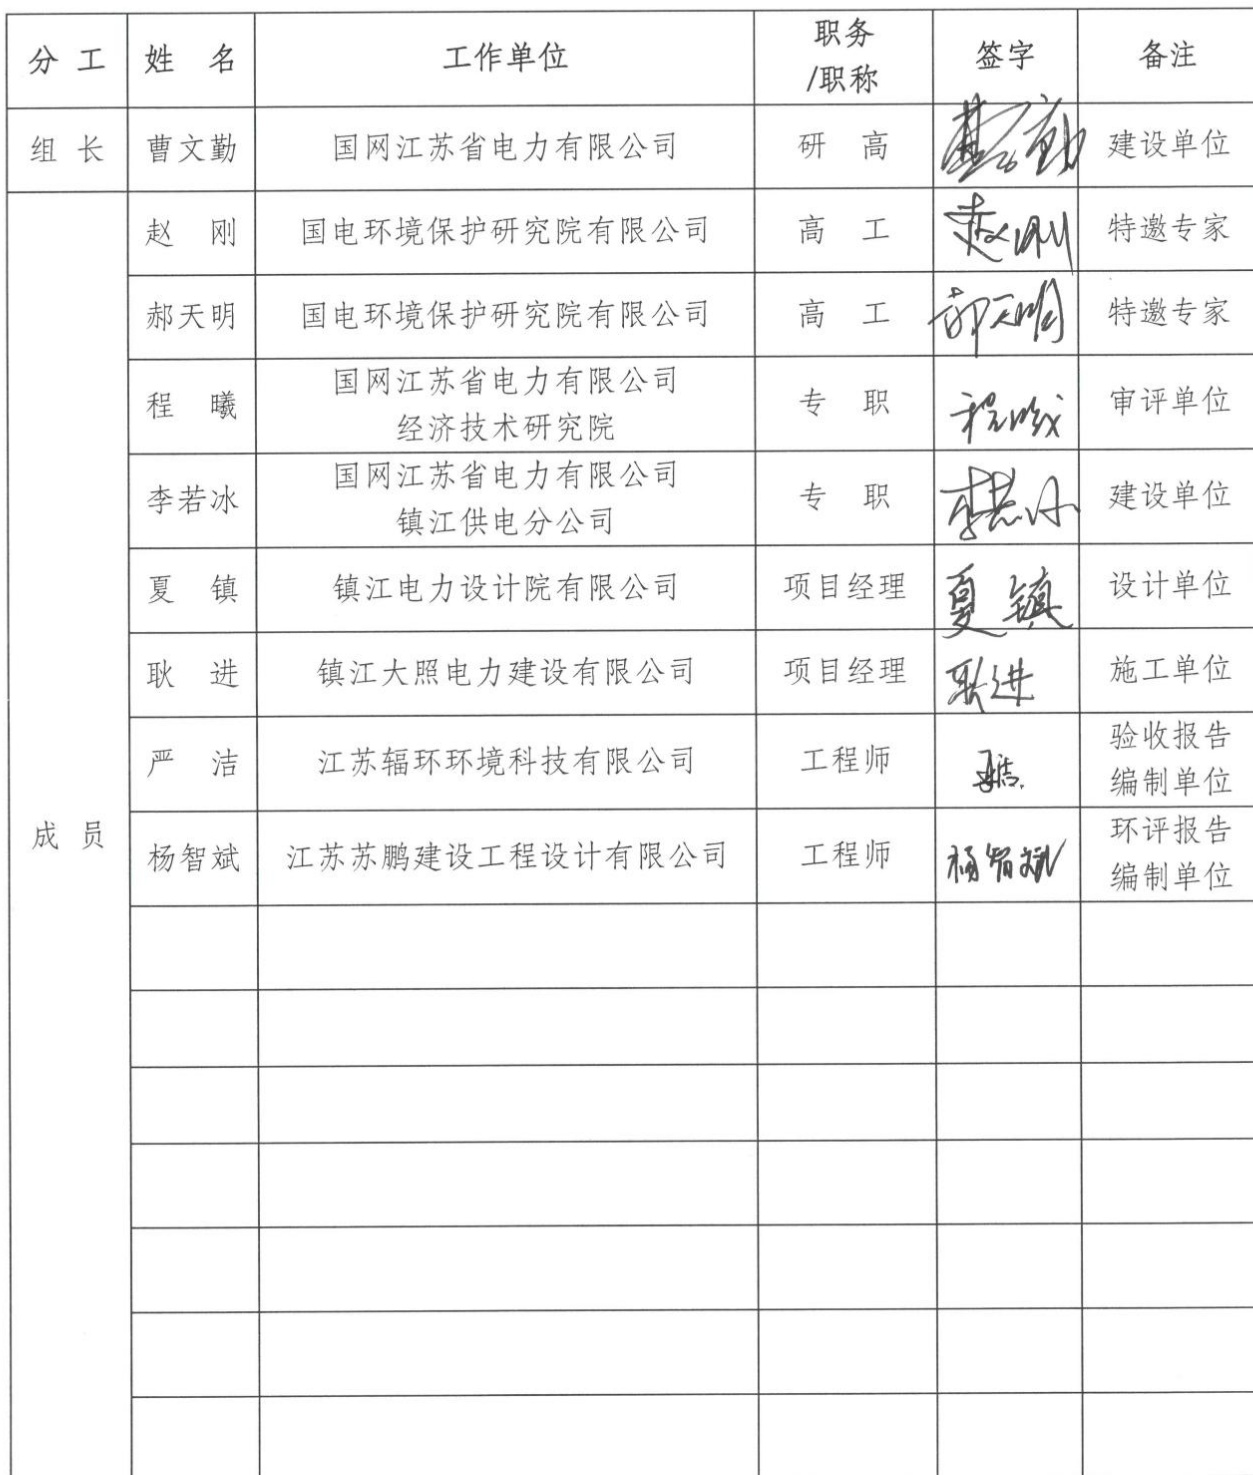 分工 姓名 工作单位 职务 签字 备注
/职称
组长 曹文勤 国网江苏省电力有限公司 研高 建设单位
赵刚 国电环境保护研究院有限公司 高工 赵刚 特邀专家
郝天明 国电环境保护研究院有限公司 高工 郝天明 特邀专家
程曦 国网江苏省电力有限公司 专职 审评单位
经济技术研究院
李若冰 国网江苏省电力有限公司 专职 李若冰 建设单位
镇江供电分公司
夏镇 镇江电力设计院有限公司 项目经理 夏镇 设计单位
耿进 镇江大照电力建设有限公司 项目经理 耿进 施工单位
严洁 江苏辐环环境科技有限公司 工程师 验收报告
编制单位
成员
杨智斌 江苏苏鹏建设工程设计有限公司 工程师 杨智斌 环评报告
编制单位